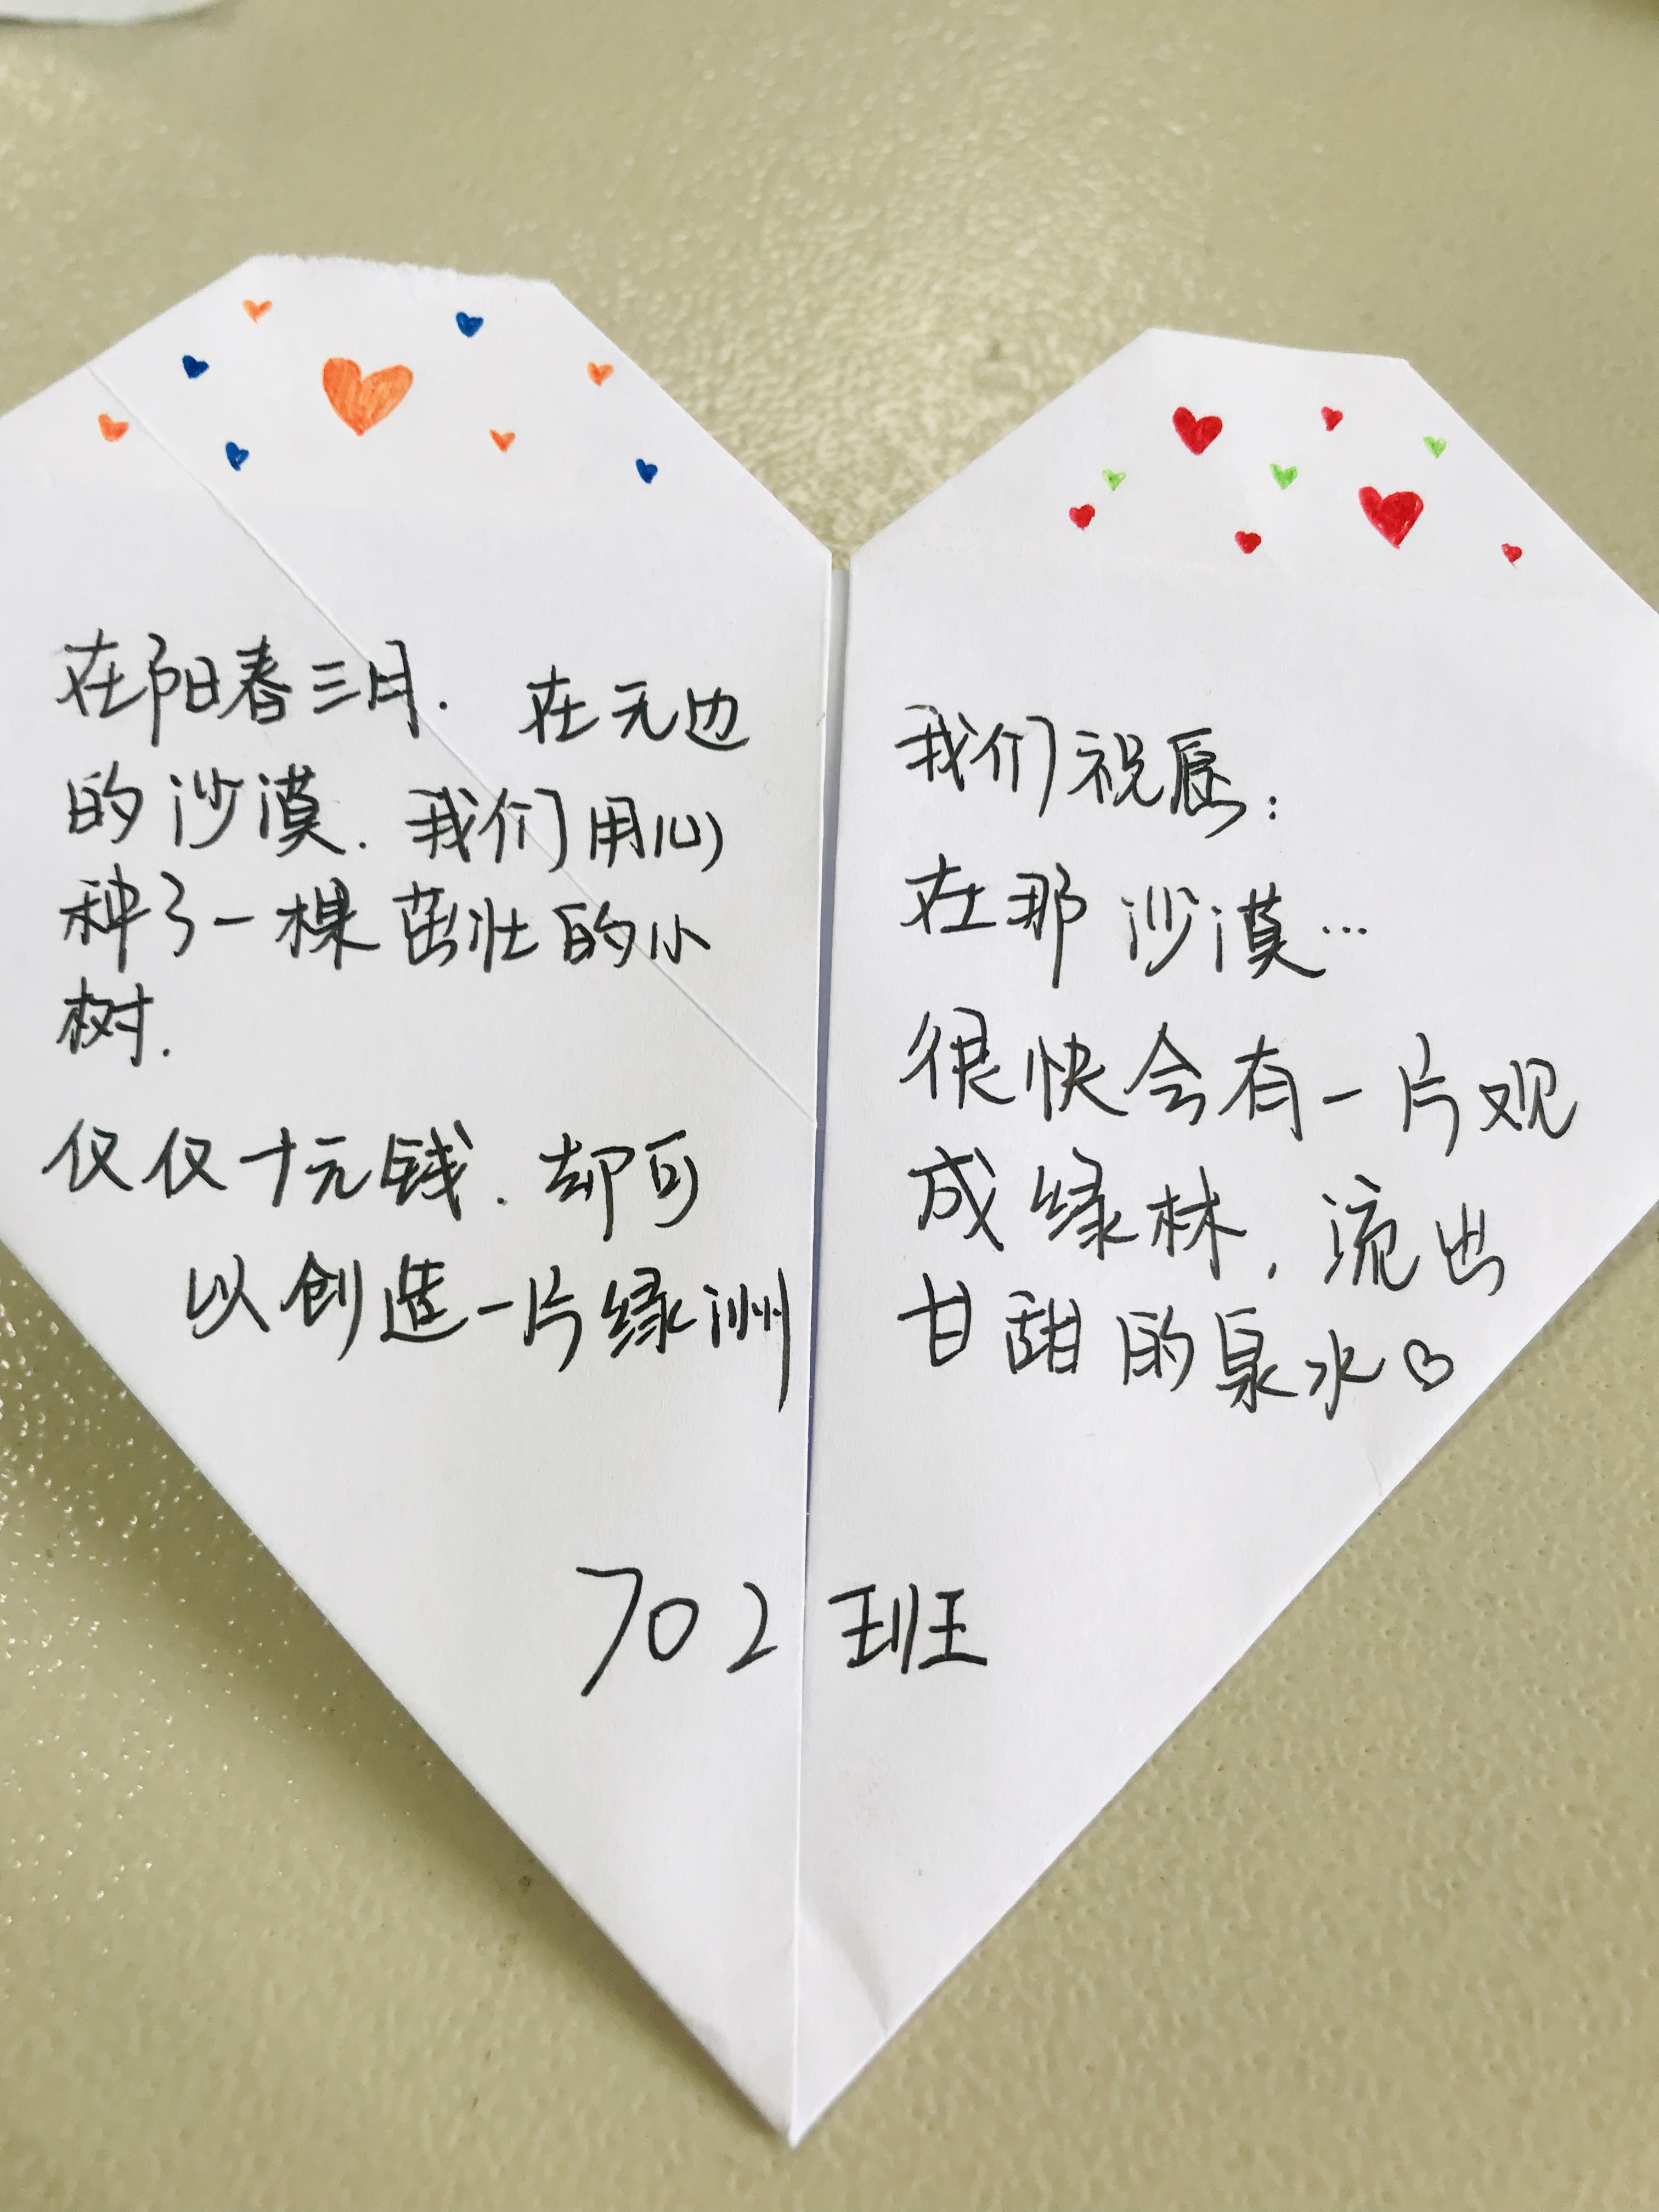 在阳春三月. 在无边
的沙漠. 我们用心
种了一棵茁壮的小
树.
仅仅十元钱. 却可
以创造一片绿洲
我们祝愿:
在那沙漠…
很快会有一片观
成绿林, 流出
甘甜的泉水♡
702班